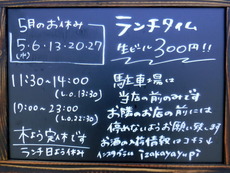 5月のお休み
5・6・13・20・27
(水)
11:30〜14:00
(L.o.13:30)
17:00〜23:00
(L.o.22:30)
木よう定休です
ランチ日よう休み
ランチタイム
生ビール300円!!
駐車場は
当店の前のみです
お隣のお店の前には
停めないようお願い致します
お酒の入荷情報はコチラ↓
インスタグラム izakayayupi